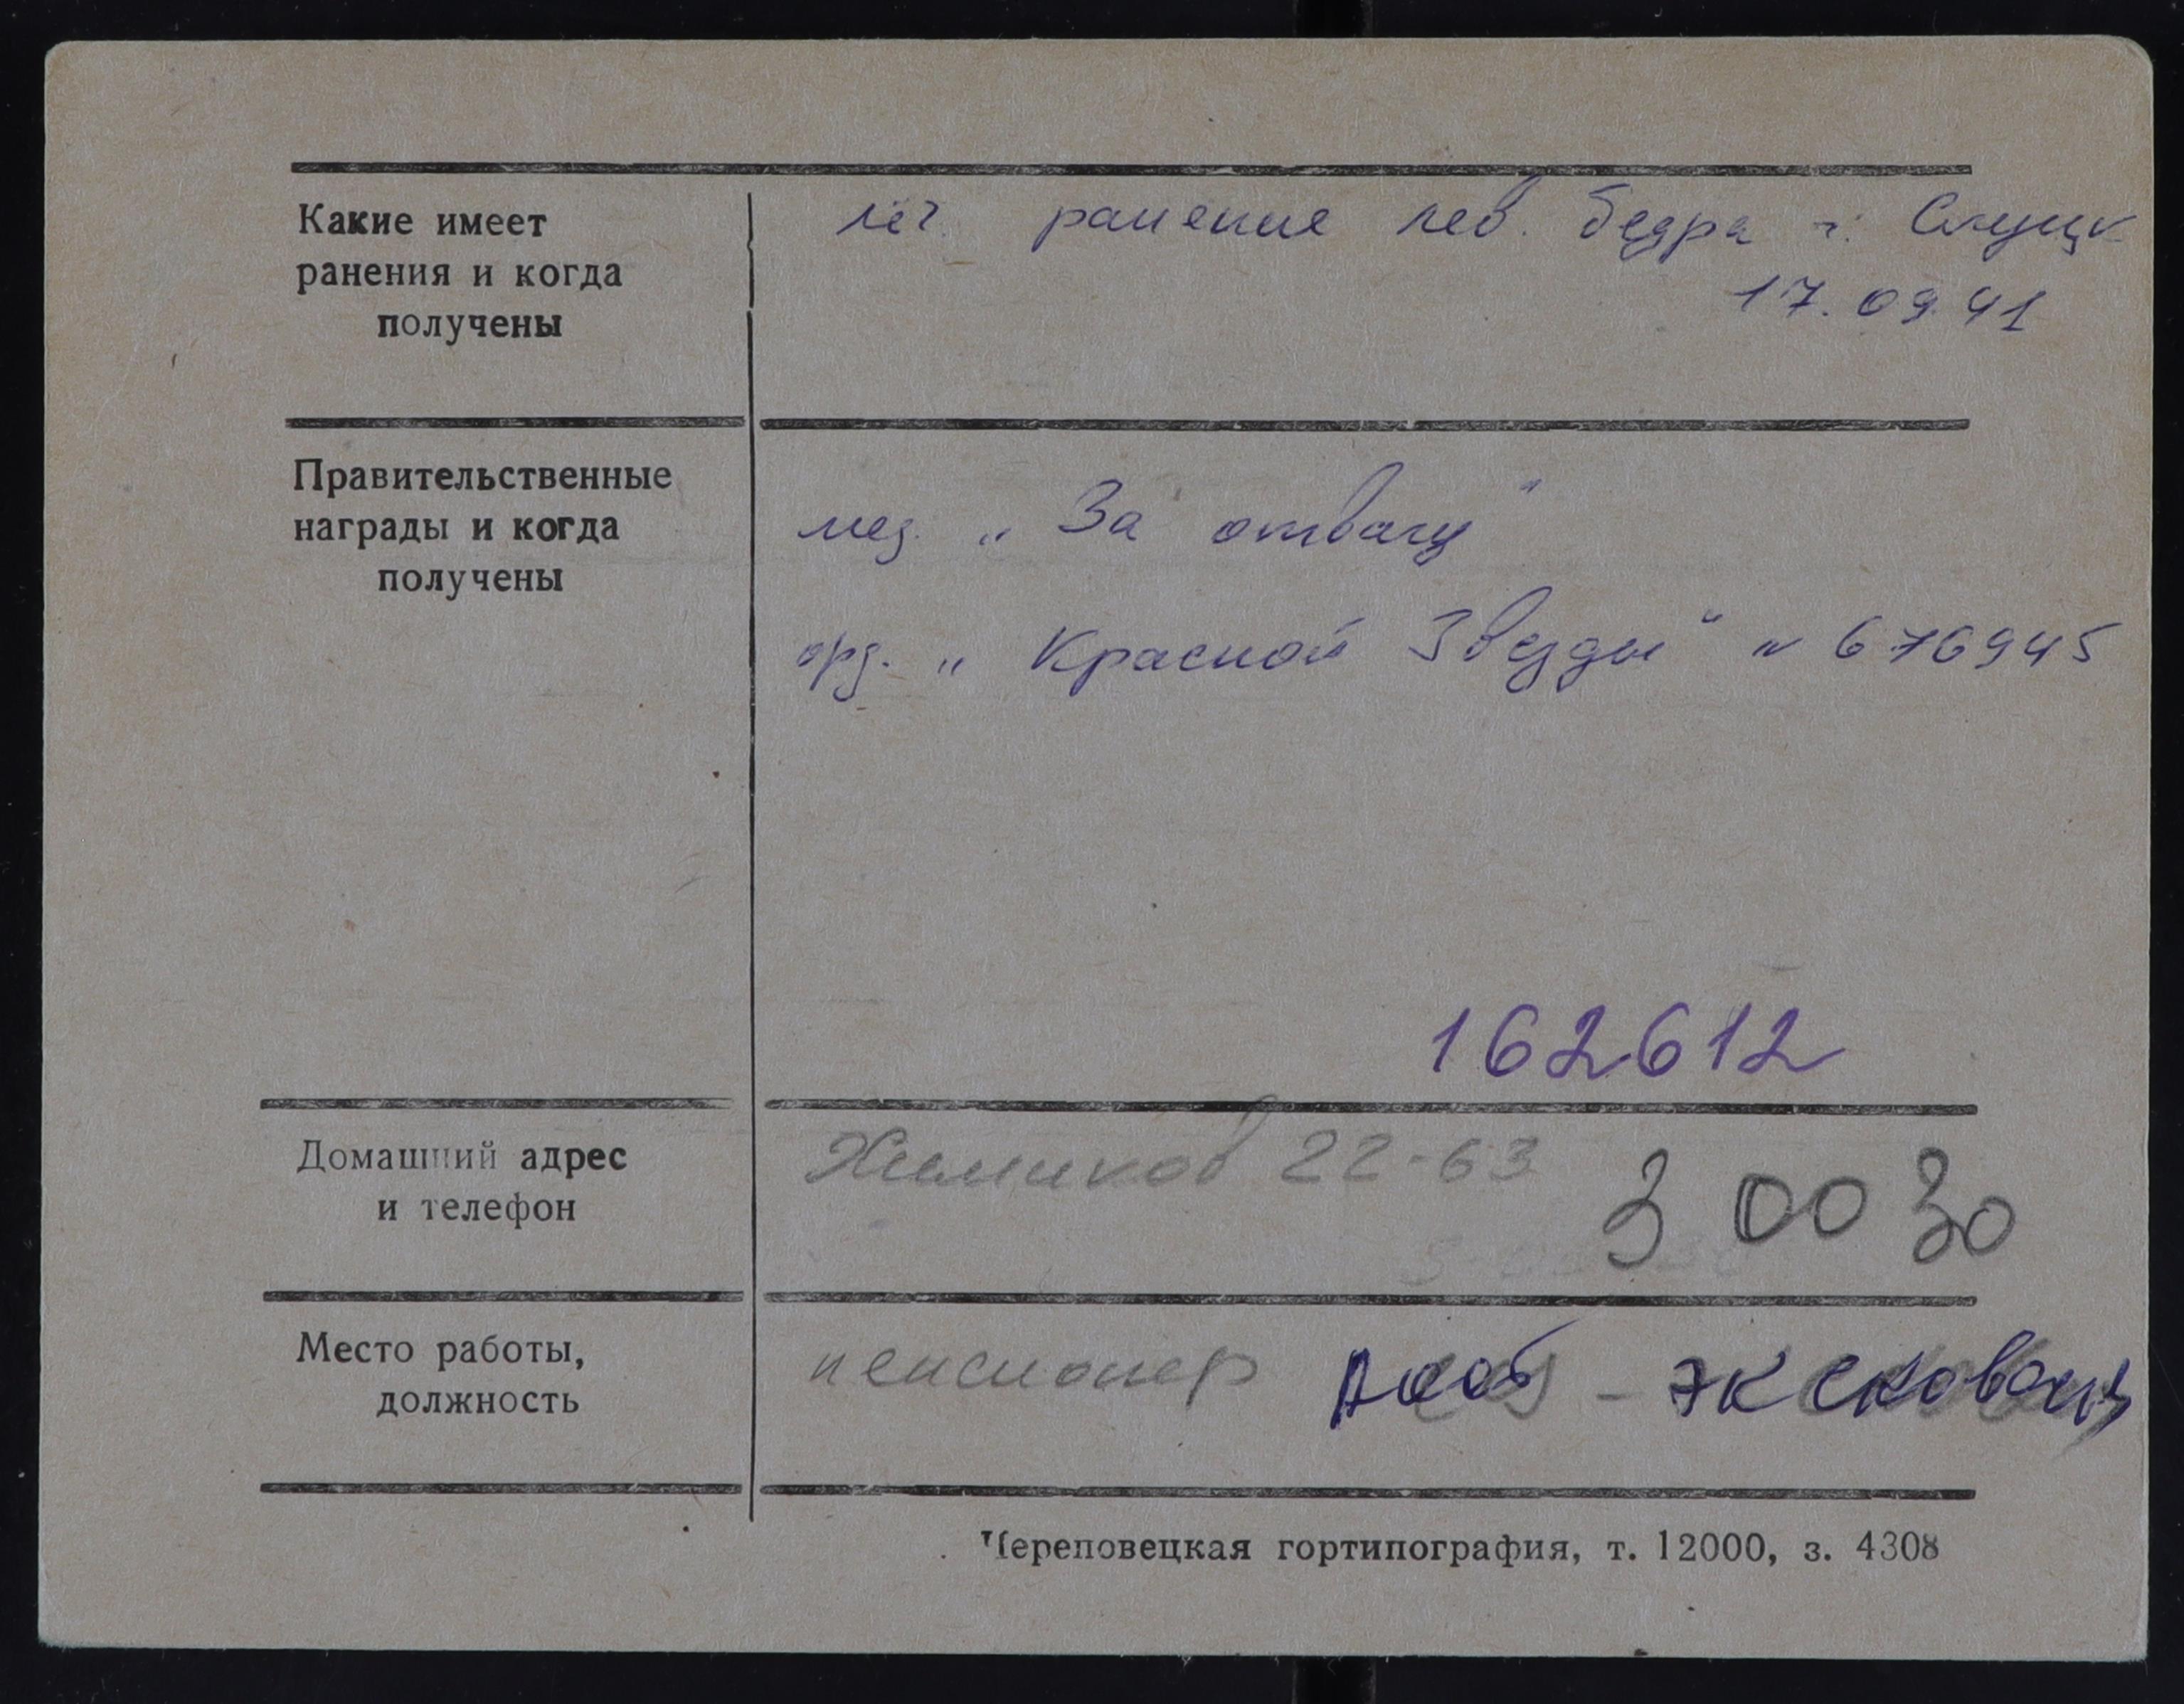 Какие имеет
ранения и когда
получены
лёг. ранение лев. бедра г. Слуцк
17.09.41
Правительственные
награды и когда
получены
мед. „За отвагу"
орд. „Красной Звезды" № 676945
162612
Домашний адрес
и телефон
Химиков 22-63
3 00 30
Место работы,
должность
пенсионер
Череповецкая гортипография, т. 12000, з. 4308